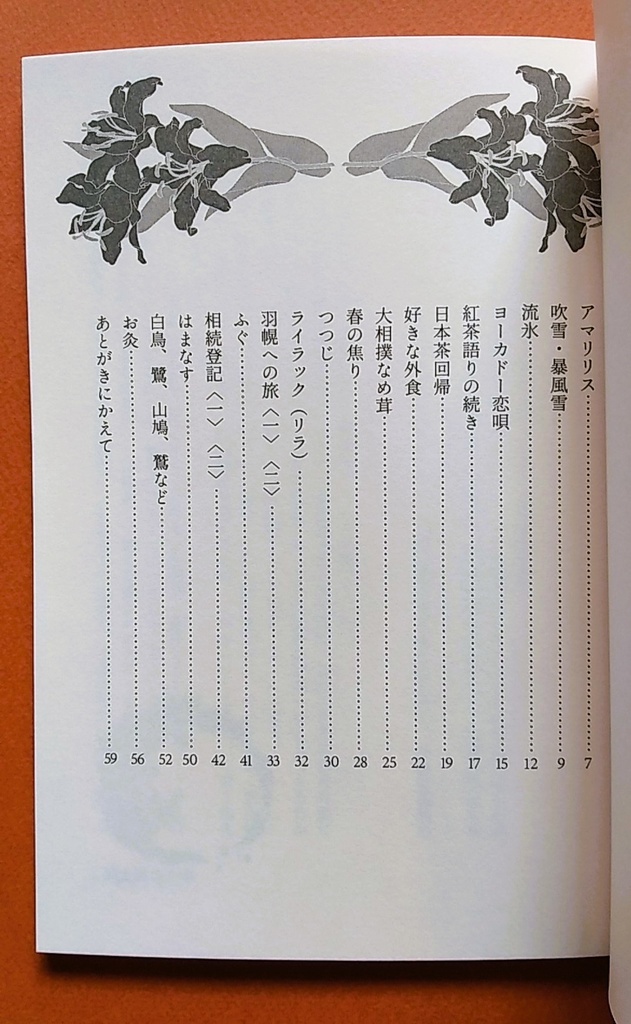 アマリリス……7
吹雪・暴風雪……9
流氷……12
ヨーカドー恋唄……15
紅茶語りの続き……17
日本茶回帰……19
好きな外食……22
大相撲なめ茸……25
春の焦り……28
つつじ……30
ライラック（リラ）……32
羽幌への旅〈一〉〈二〉……33
ふぐ……41
相続登記〈一〉〈二〉……42
はまなす……50
白鳥、鷺、山鳩、鷲など……52
お灸……56
あとがきにかえて……59